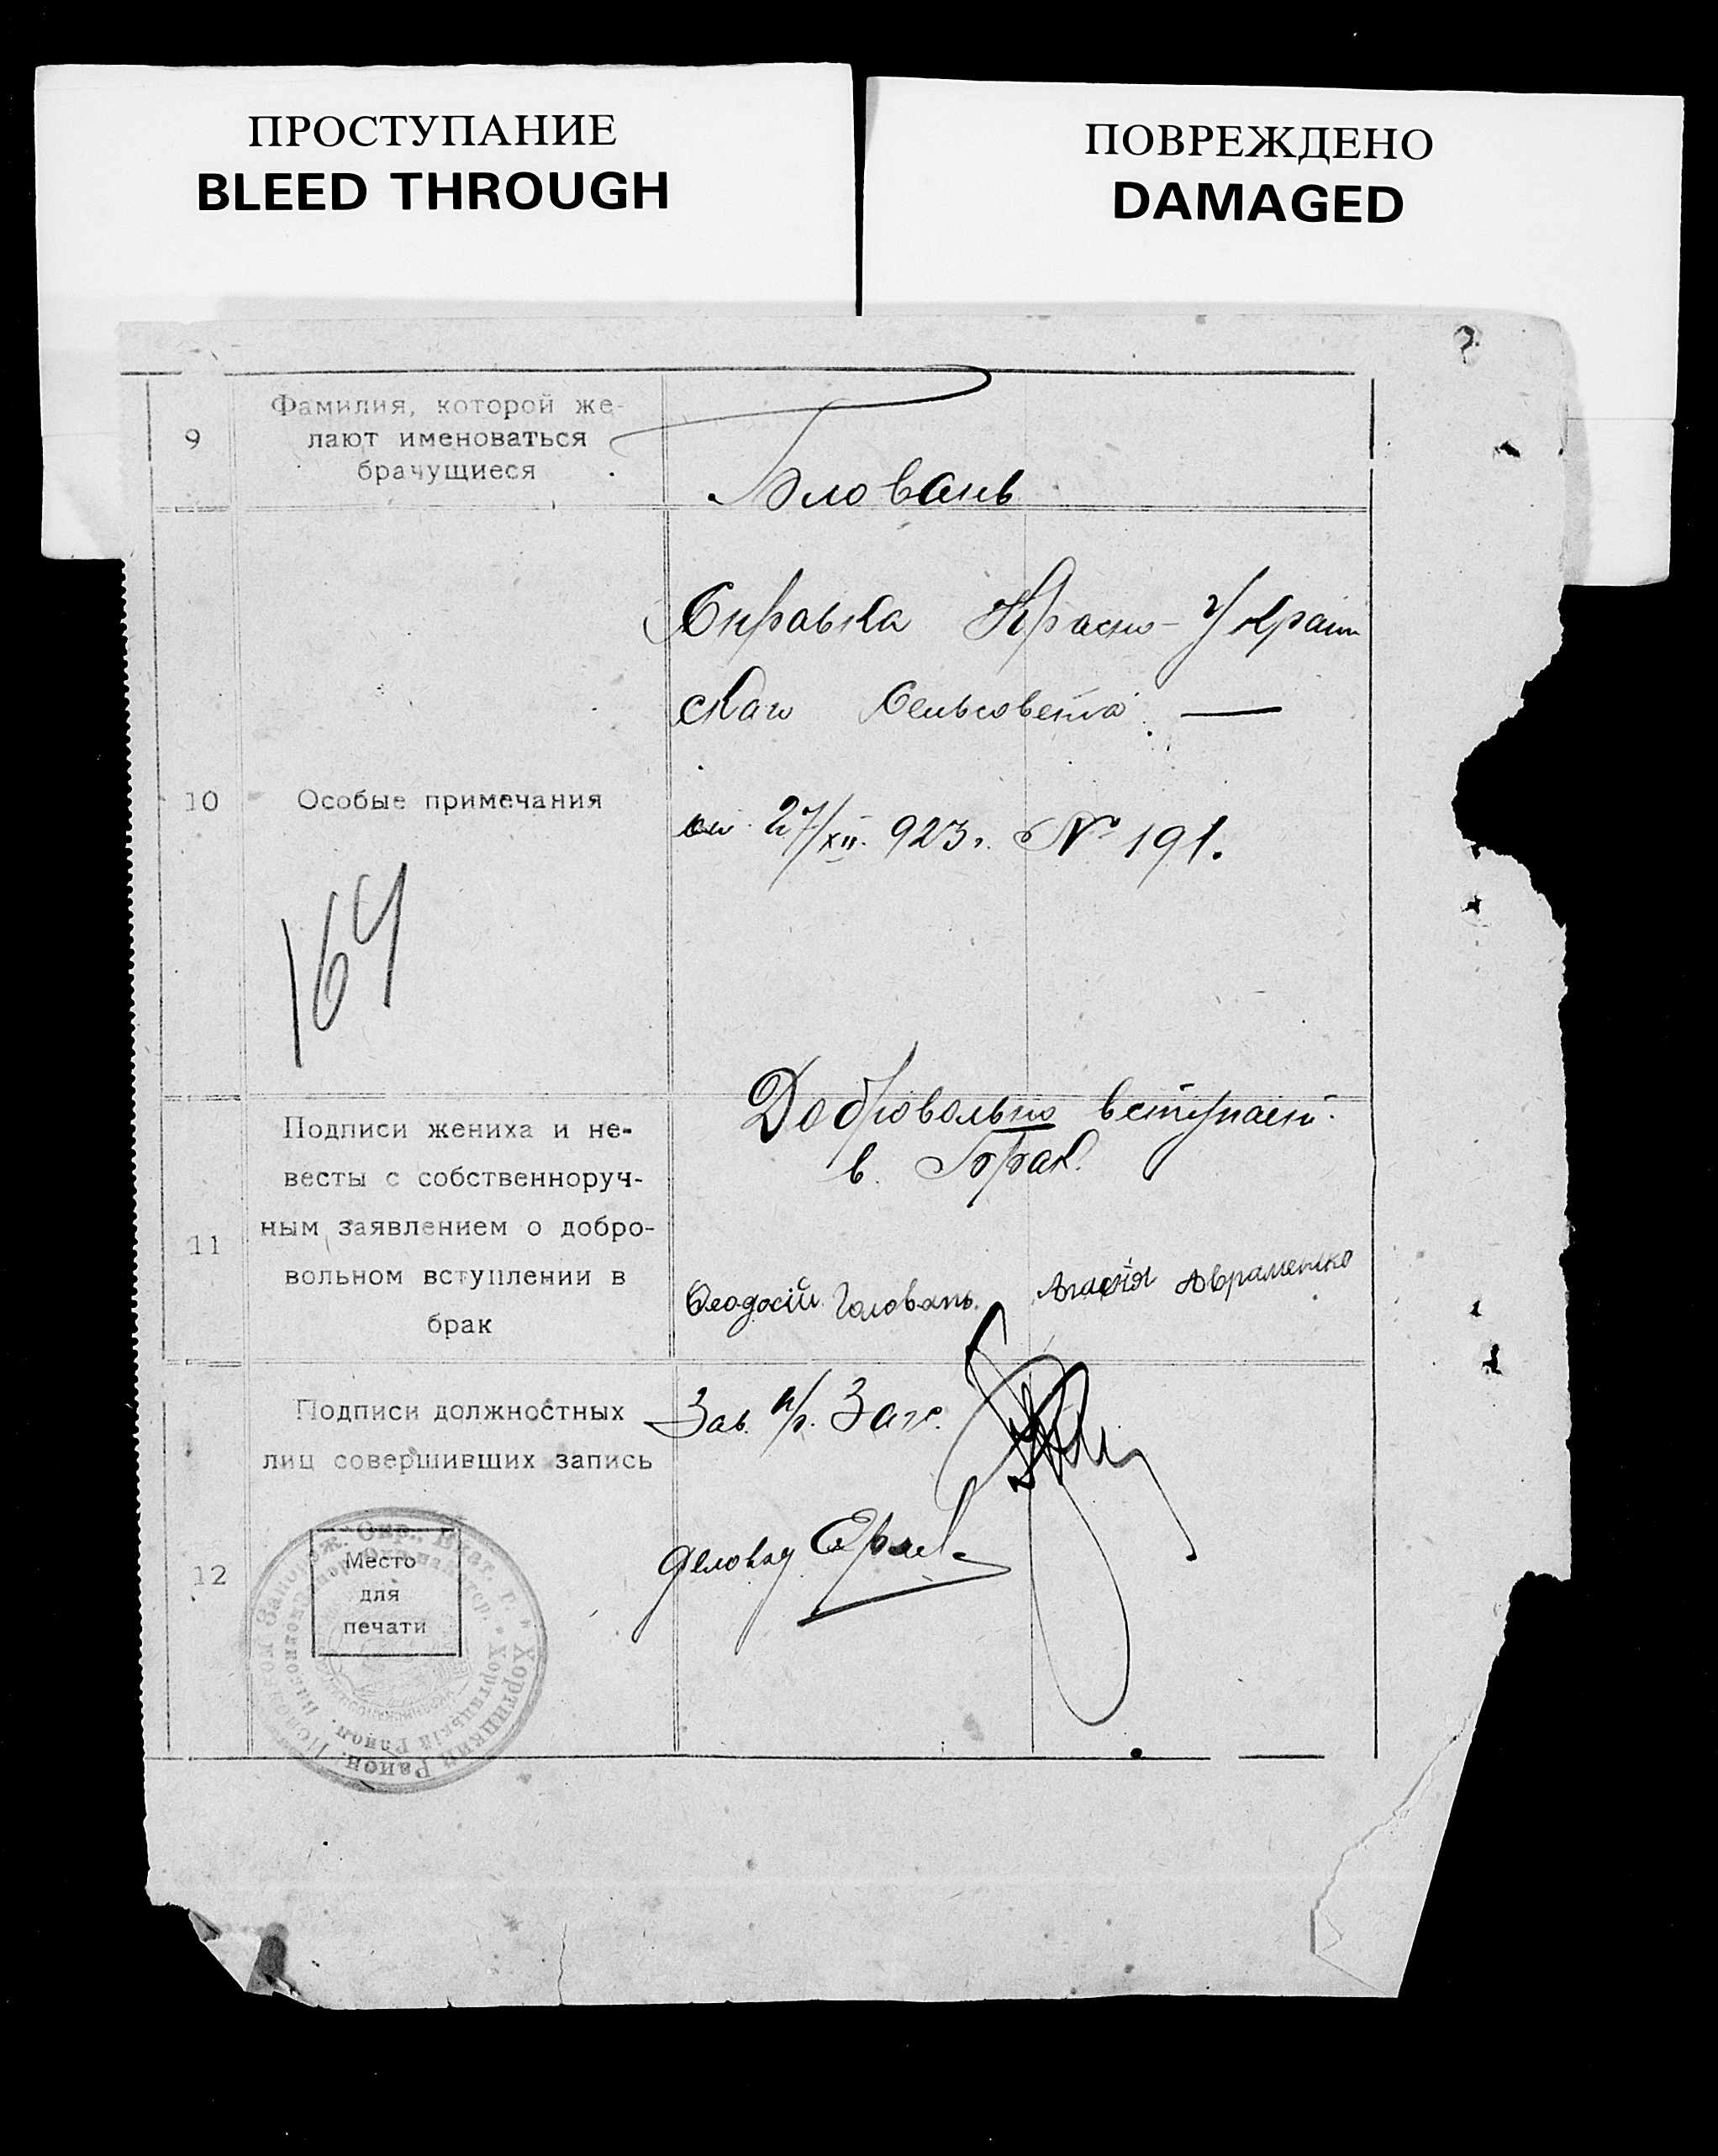 ПРОСТУПАНИЕ
BLEED THROUGH
ПОВРЕЖДЕНО
DAMAGED
9
Фамилия, которой же-
лают именоваться
брачущиеся
Головань
10
Особые примечания
Справка Красно-Украин
скаго Сельсовета. —
от 27/XII. 923 г. № 191.
164
11
Подписи жениха и не-
весты с собственноруч-
ным заявлением о добро-
вольном вступлении в
брак
Добровольно вступает
в брак.
Феодосій Головань.
Авраменко
12
Подписи должностных
лиц совершивших запись
Зав. п/о. Загс.
Деловод
Место
для
печати
Хортицкий Район.
Хортицькій Район.